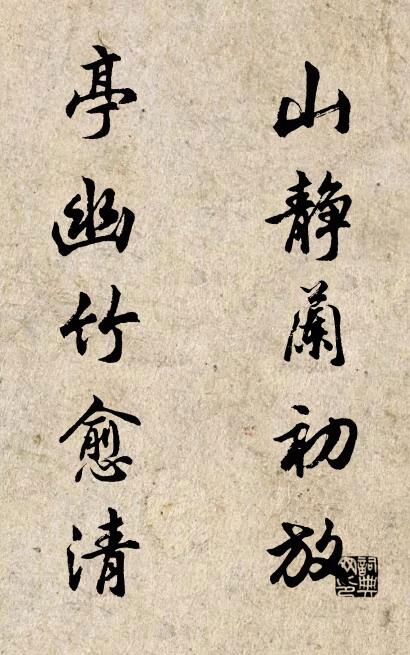 山静蘭初放
亭幽竹愈清
詞典